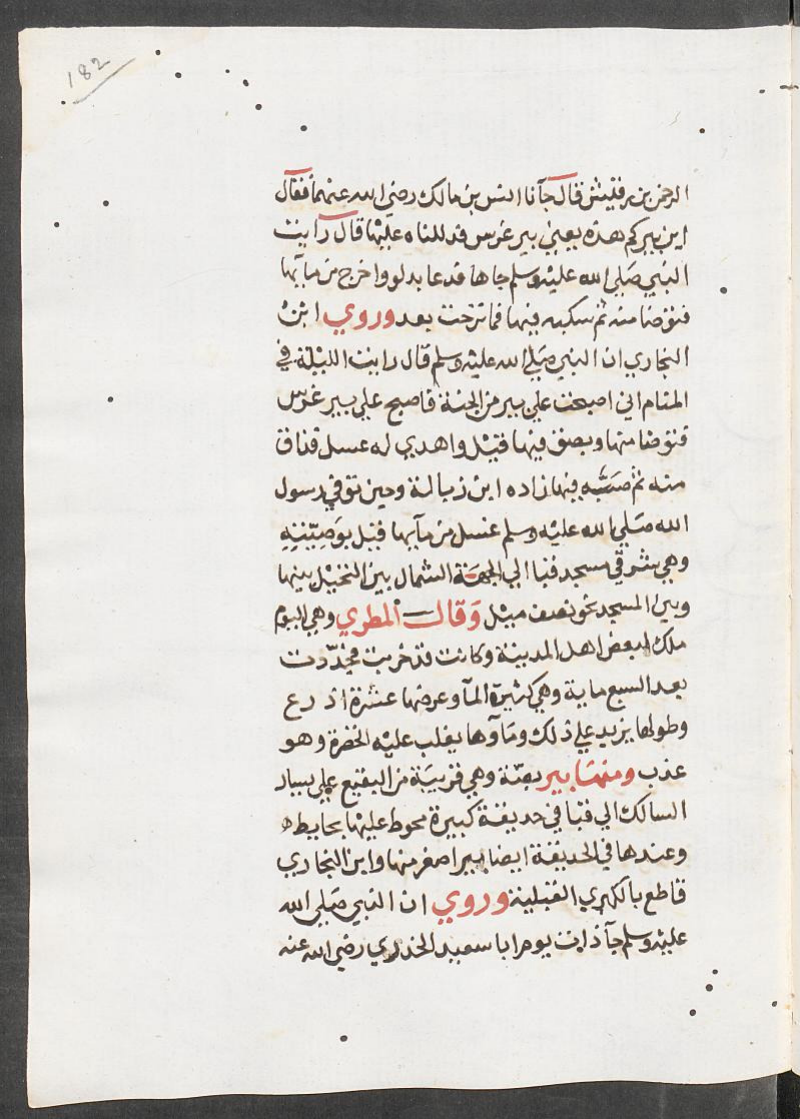 182
الرحمن بن رقيش قال جآنا انس بن مالك رضي الله عنهما فقال
اين بيركم هذه يعني بير غرس فدللناه عليها قال رايت
النبي صلي الله عليه وسلم جاها فدعا بدلو واخرج من مايها
فتوضا منه ثم سكبه فيها فما نزحت بعد وروي ابن
النجاري ان النبي صلي الله عليه وسلم قال رايت الليلة في
المنام اني اصبحت علي بير من الجنة فاصبح علي بير غرس
فتوضا منها وبصق فيها قيل واهدي له عسل فذاق
منه ثم صبه فيها زاده ابن زبالة وحين توفي رسول
الله صلي الله عليه وسلم غسل من مآيها قيل بوصيته
وهي شرقي مسجد قبا الي الجهة الشمال بين النخيل بينها
وبين المسجد نحو نصف ميل وقال المطري وهي اليوم
ملك لبعض اهل المدينة وكانت قد خربت فجددت
بعد السبع ماية وهي كثيرة المآ وعرضها عشرة اذرع
وطولها يزيد علي ذلك ومآوها يغلب عليه الخضرة وهو
عذب ومنها بير بصة وهي قريبة من البقيع علي يسار
السالك الي قبا في حديقة كبيرة محوط عليها بحايط
وعندها في الحديقة ايضا بير اصغر منها وابن النجاري
قاطع بالكبري القبلية وروي ان النبي صلي الله
عليه وسلم جآ ذات يوم ابا سعيد الخدري رضي الله عنه